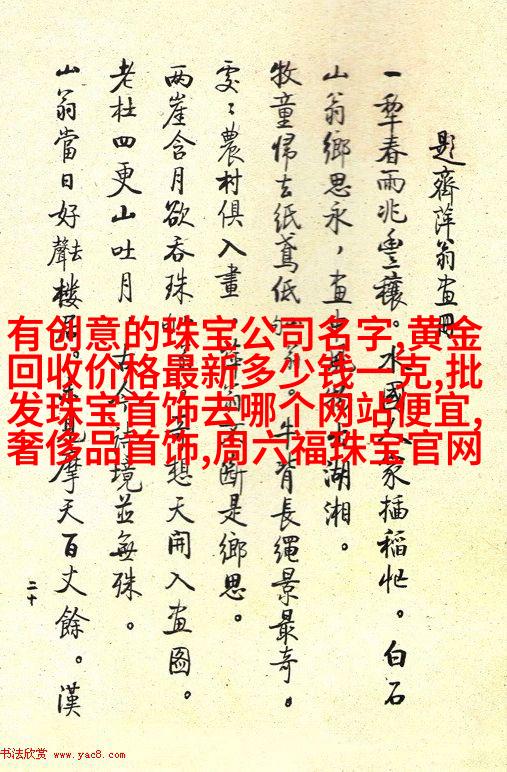 題齊萍翁画冊
一犁春雨兆豐穰。水國人家插稻忙。白石
山翁鄉思永,画 湖湘。
牧童歸去紙鳶低 牛背長繩景最奇。
處〻農村俱入畫。萍翁 斷是鄉思。
两崖含月欲吞珠 想天開入画图。
老杜四更山吐月 古今詩境並無殊。
山翁當日好去聲樓居。 摩天百丈餘。漢
二十
有创意的珠宝公司名字,黄金
回收价格最新多少钱一克,批
发珠宝首饰去哪个网站便宜,
奢侈品首饰,周六福珠宝官网
书法欣赏 www.yac8.com